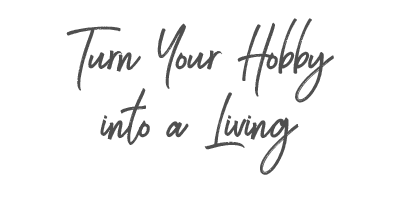 Turn Your Hobby
into a Living